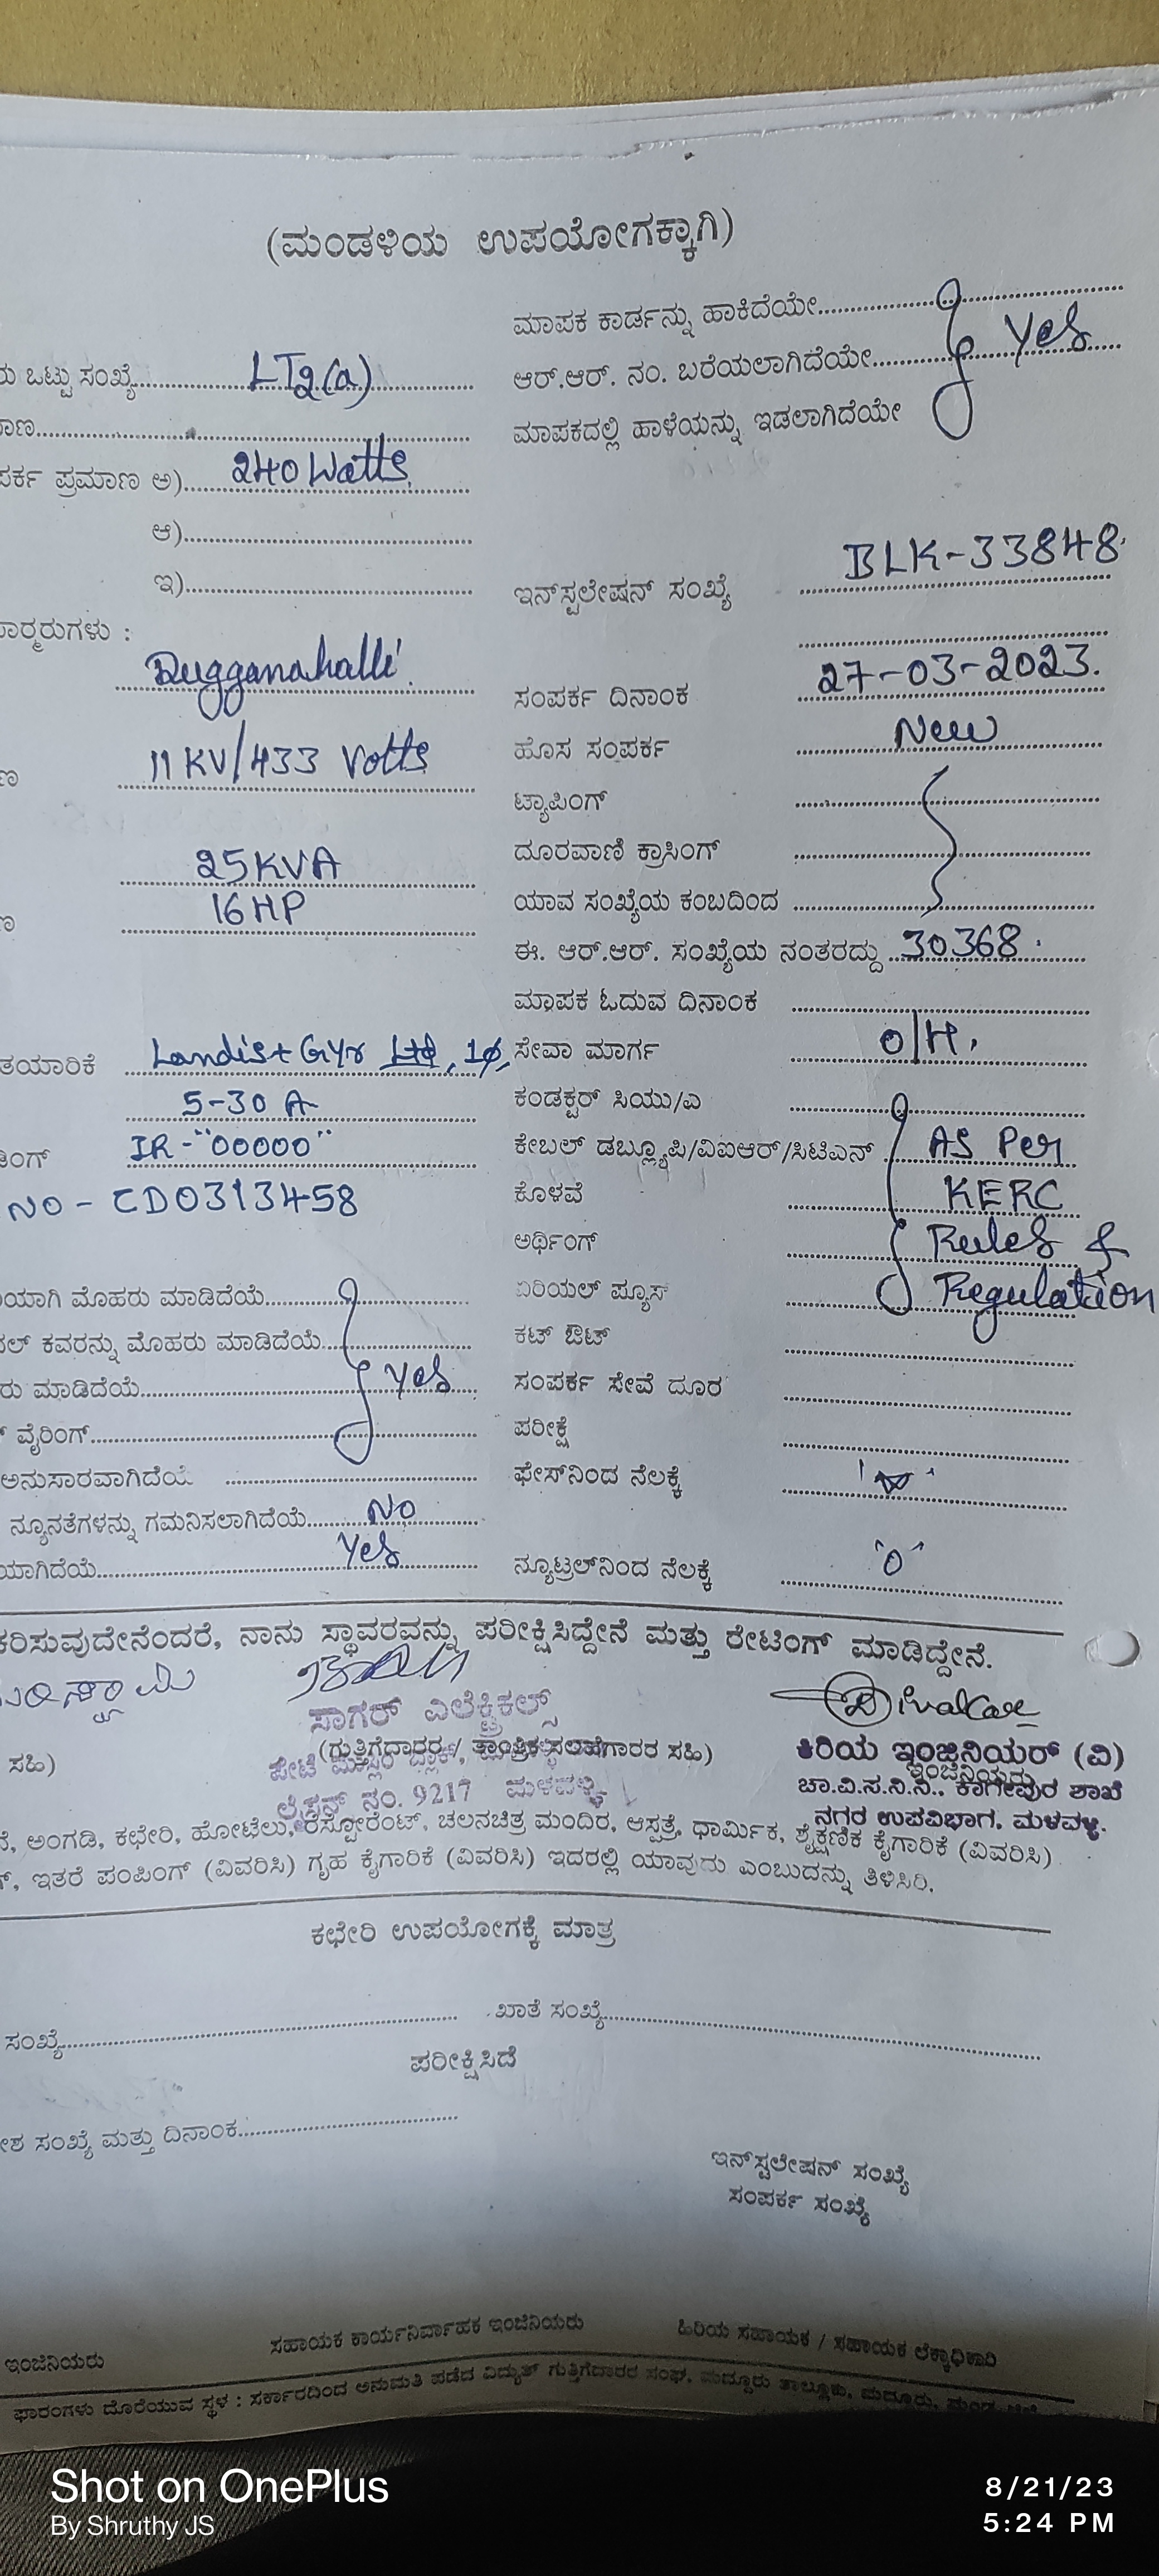 (ಮಂಡಳಿಯ ಉಪಯೋಗಕ್ಕಾಗಿ)
ಒಟ್ಟು ಸಂಖ್ಯೆ LT2(a)
240 Watts
ಪ್ರಮಾಣ ಅ)
ಆ)
ಇ)
Dugganahalli
11 KV/433 Volts
25 KVA
16 HP
ತಯಾರಿಕೆ Landis+Gyr Ltd, 1φ,
5-30 A
IR-"00000"
NO - CD0313458
ಮೊಹರು ಮಾಡಿದೆಯೆ
ಕವರನ್ನು ಮೊಹರು ಮಾಡಿದೆಯೆ
ಮಾಡಿದೆಯೆ Yes
ವೈರಿಂಗ್
ಅನುಸಾರವಾಗಿದೆಯೆ
ನ್ಯೂನತೆಗಳನ್ನು ಗಮನಿಸಲಾಗಿದೆಯೆ No
Yes
ಮಾಪಕ ಕಾರ್ಡನ್ನು ಹಾಕಿದೆಯೇ
ಆರ್.ಆರ್. ನಂ. ಬರೆಯಲಾಗಿದೆಯೇ Yes
ಮಾಪಕದಲ್ಲಿ ಹಾಳೆಯನ್ನು ಇಡಲಾಗಿದೆಯೇ
ಇನ್‌ಸ್ಟಲೇಷನ್ ಸಂಖ್ಯೆ BLK-33848
ಸಂಪರ್ಕ ದಿನಾಂಕ 27-03-2023.
ಹೊಸ ಸಂಪರ್ಕ New
ಟ್ಯಾಪಿಂಗ್
ದೂರವಾಣಿ ಕ್ರಾಸಿಂಗ್
ಯಾವ ಸಂಖ್ಯೆಯ ಕಂಬದಿಂದ
ಈ. ಆರ್.ಆರ್. ಸಂಖ್ಯೆಯ ನಂತರದ್ದು 30368
ಮಾಪಕ ಓದುವ ದಿನಾಂಕ
ಸೇವಾ ಮಾರ್ಗ O/H,
ಕಂಡಕ್ಟರ್ ಸಿಯು/ಎ
ಕೇಬಲ್ ಡಬ್ಲ್ಯೂಪಿ/ವಿಐಆರ್/ಸಿಟಿಎನ್ AS Per
ಕೊಳವೆ KERC
ಅರ್ಥಿಂಗ್ Rules &
ಏರಿಯಲ್ ಪ್ಯೂಸ್ Regulation
ಕಟ್ ಔಟ್
ಸಂಪರ್ಕ ಸೇವೆ ದೂರ
ಪರೀಕ್ಷೆ
ಫೇಸ್‌ನಿಂದ ನೆಲಕ್ಕೆ
ನ್ಯೂಟ್ರಲ್‌ನಿಂದ ನೆಲಕ್ಕೆ "0"
ನಾನು ಸ್ಥಾವರವನ್ನು ಪರೀಕ್ಷಿಸಿದ್ದೇನೆ ಮತ್ತು ರೇಟಿಂಗ್ ಮಾಡಿದ್ದೇನೆ.
ಸಾಗರ್ ಎಲೆಕ್ಟ್ರಿಕಲ್ಸ್
ಸಹಿ)
(ಗುತ್ತಿಗೆದಾರರ / ತಾಂತ್ರಿಕ ಸಲಹೆಗಾರರ ಸಹಿ)
ಲೈಸನ್ಸ್ ನಂ. 9217 ಮಳವಳ್ಳಿ
ಕಿರಿಯ ಇಂಜಿನಿಯರ್ (ವಿ)
ಇಂಜಿನಿಯರು
ಚಾ.ವಿ.ಸ.ನಿ.ನಿ., ಕಾಗೇಪುರ ಶಾಖೆ
ನಗರ ಉಪವಿಭಾಗ, ಮಳವಳ್ಳಿ.
ಅಂಗಡಿ, ಕಛೇರಿ, ಹೋಟೆಲು, ರೆಸ್ಟೋರೆಂಟ್, ಚಲನಚಿತ್ರ ಮಂದಿರ, ಆಸ್ಪತ್ರೆ, ಧಾರ್ಮಿಕ, ಶೈಕ್ಷಣಿಕ ಕೈಗಾರಿಕೆ (ವಿವರಿಸಿ)
ಇತರೆ ಪಂಪಿಂಗ್ (ವಿವರಿಸಿ) ಗೃಹ ಕೈಗಾರಿಕೆ (ವಿವರಿಸಿ) ಇದರಲ್ಲಿ ಯಾವುದು ಎಂಬುದನ್ನು ತಿಳಿಸಿರಿ.
ಕಛೇರಿ ಉಪಯೋಗಕ್ಕೆ ಮಾತ್ರ
ಸಂಖ್ಯೆ ಖಾತೆ ಸಂಖ್ಯೆ
ಪರೀಕ್ಷಿಸಿದೆ
ಸಂಖ್ಯೆ ಮತ್ತು ದಿನಾಂಕ
ಇನ್‌ಸ್ಟಲೇಷನ್ ಸಂಖ್ಯೆ
ಸಂಪರ್ಕ ಸಂಖ್ಯೆ
ಇಂಜಿನಿಯರು ಸಹಾಯಕ ಕಾರ್ಯನಿರ್ವಾಹಕ ಇಂಜಿನಿಯರು ಹಿರಿಯ ಸಹಾಯಕ / ಸಹಾಯಕ ಲೆಕ್ಕಾಧಿಕಾರಿ
ಫಾರಂಗಳು ದೊರೆಯುವ ಸ್ಥಳ : ಸರ್ಕಾರದಿಂದ ಅನುಮತಿ ಪಡೆದ ವಿದ್ಯುತ್ ಗುತ್ತಿಗೆದಾರರ ಸಂಘ, ಮದ್ದೂರು ತಾಲ್ಲೂಕು, ಮದ್ದೂರು,
Shot on OnePlus
By Shruthy JS
8/21/23
5:24 PM